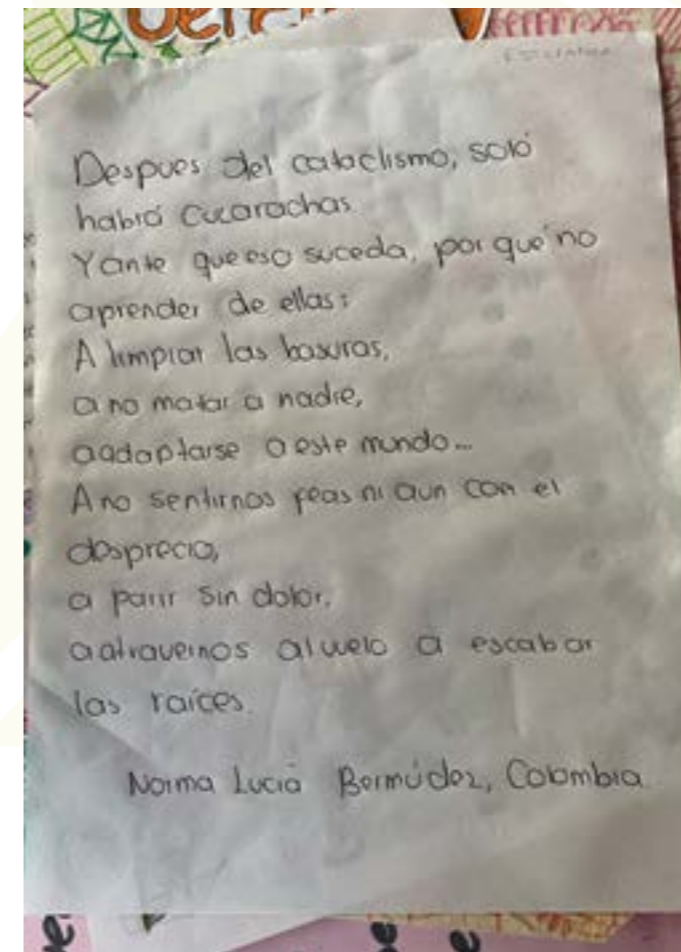 Despues del cataclismo, soló
habrá cucarachas.
Y ante que eso suceda, por que no
aprender de ellas:
A limpiar las basuras,
a no matar a nadie,
a adaptarse a este mundo...
A no sentirnos feas ni aun con el
desprecio,
a parir sin dolor,
a atravernos al vuelo a escabar
las raíces.
Norma Lucía Bermúdez, Colombia